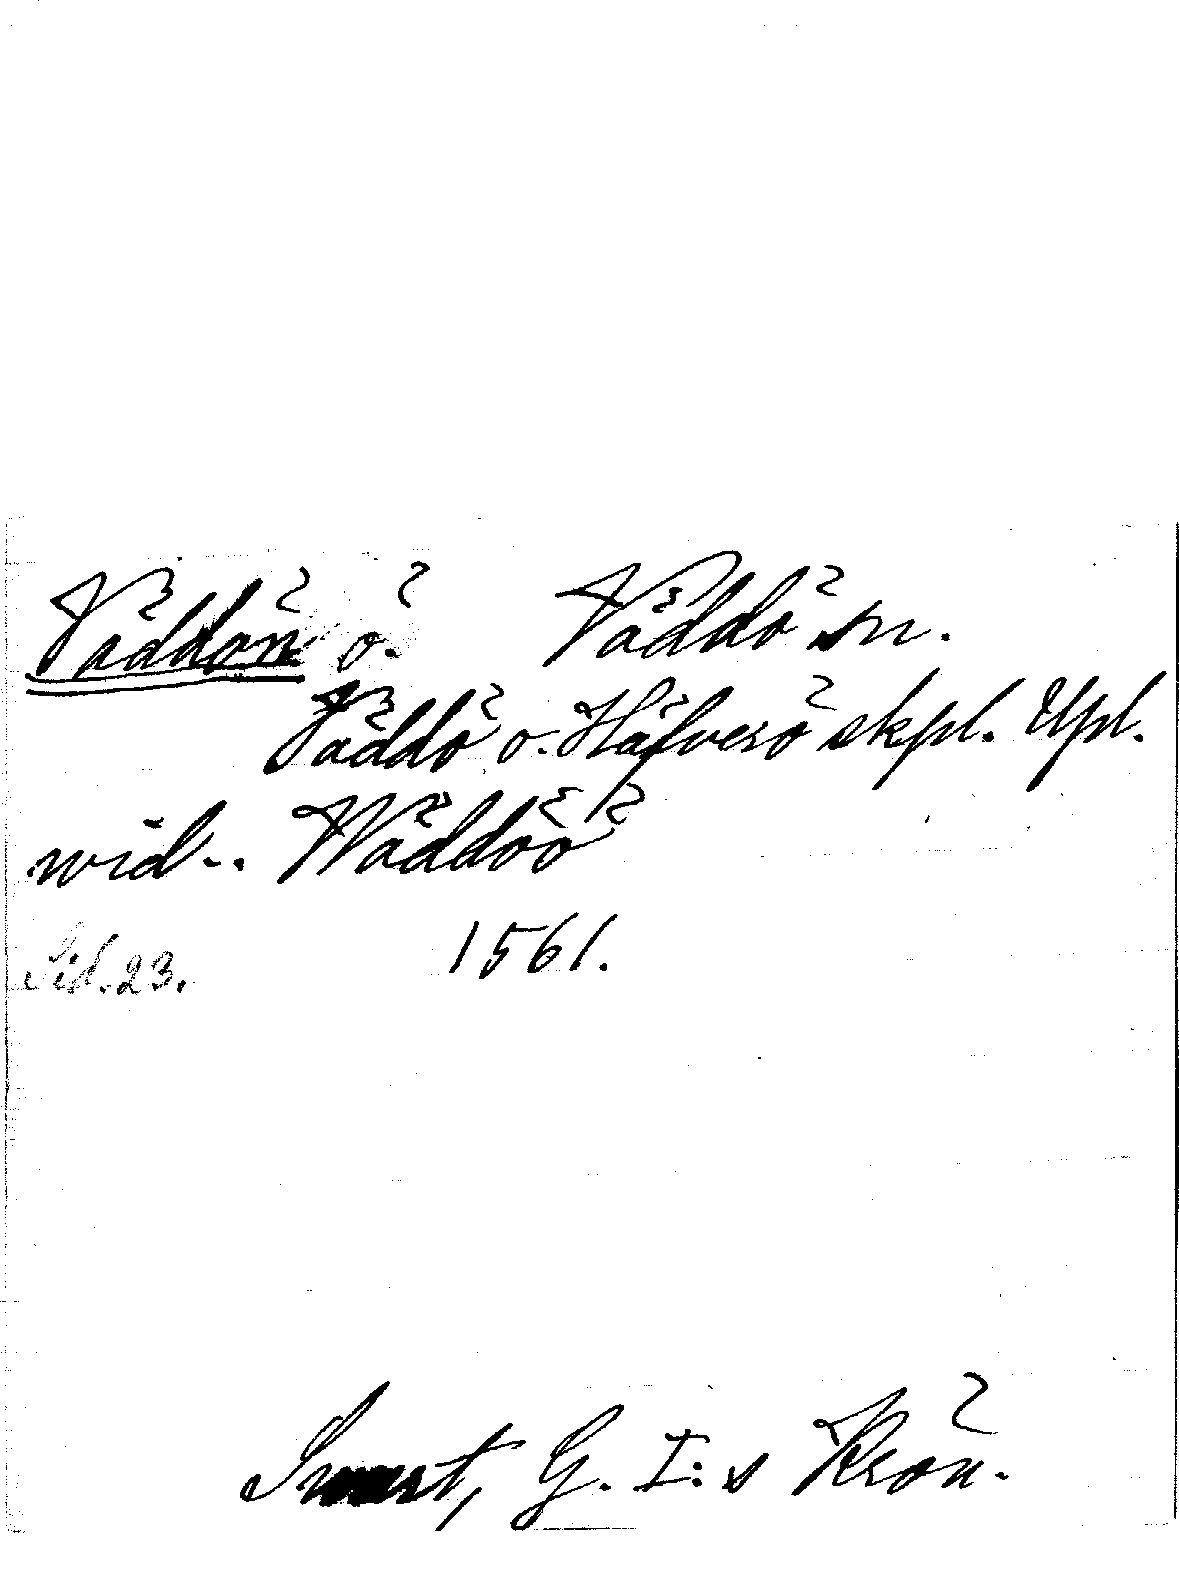 Väddön ö. Väddö sn.
Väddö o. Häfverö skpl. Upl.
wid.. Wäddöö
Sid. 23. 1561.
Swart, G. I:s Krön.